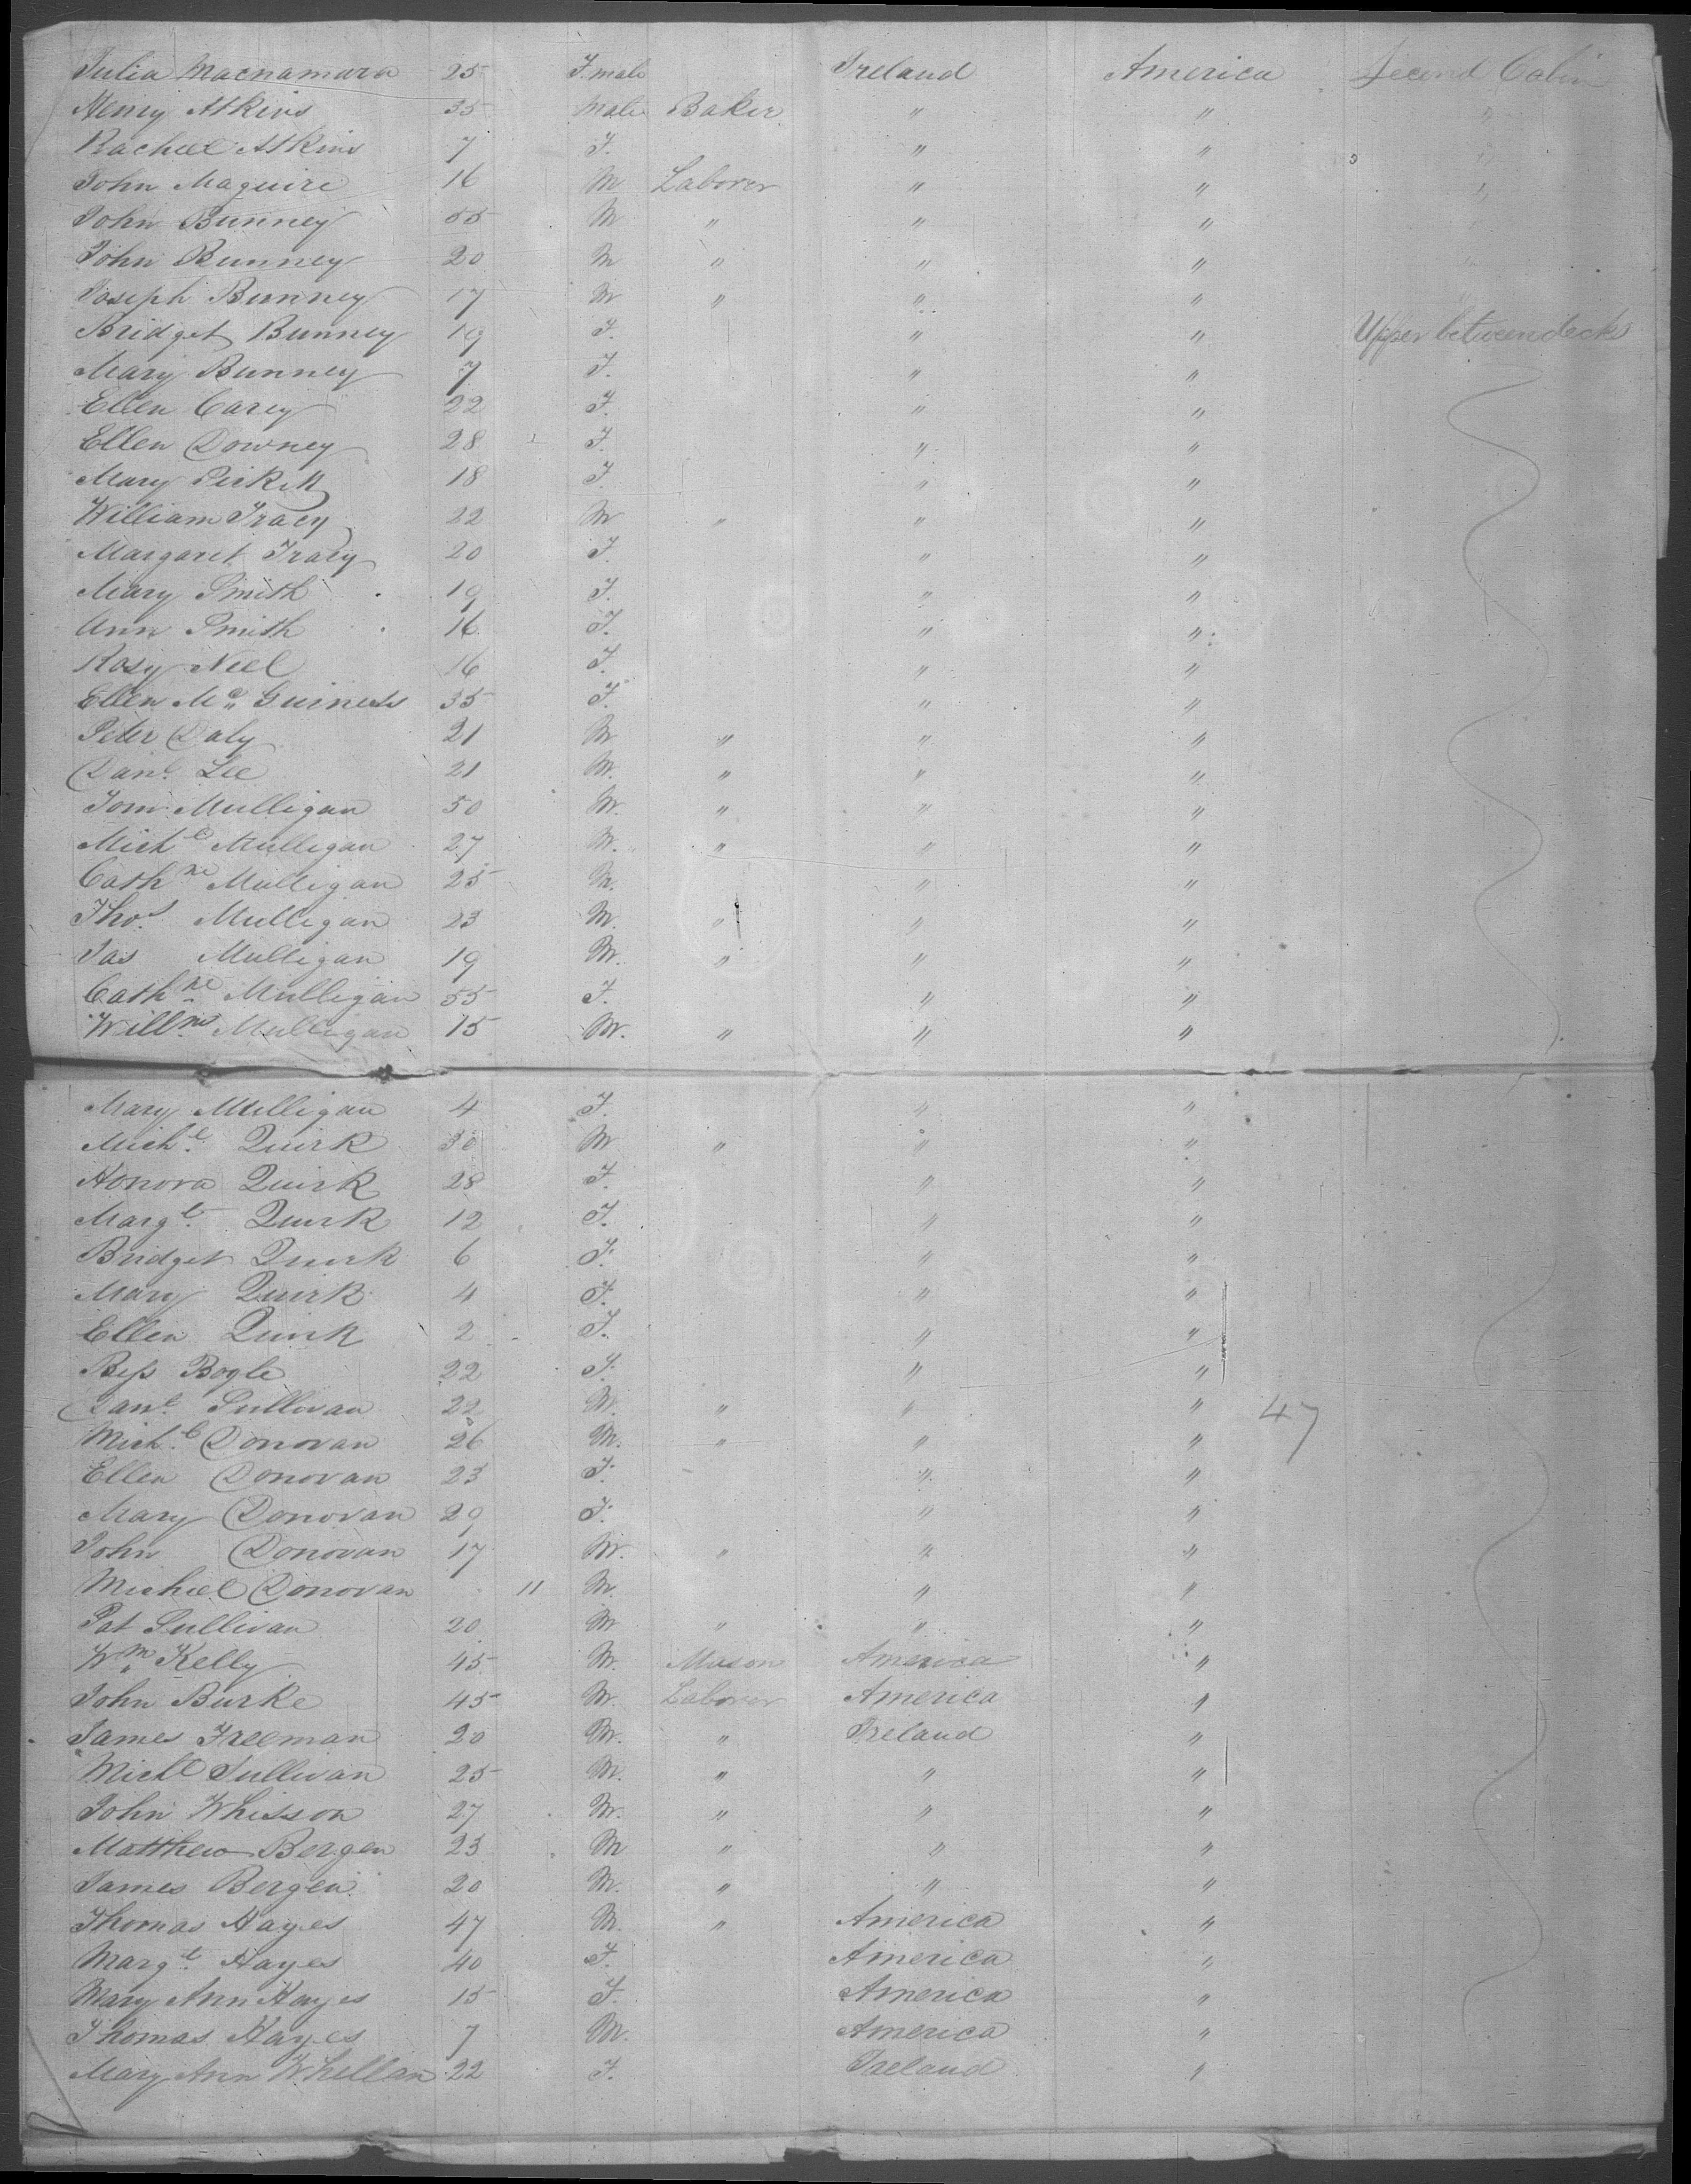 Julia Macnamara 25 F.male Ireland America Second Cabin
Henry Atkins 35 Male Baker " " "
Rachael Atkins 7 F. " " "
John Maguire 16 M Laborer " " "
John Bunney 55 M " " " "
John Bunney 20 M " " " "
Joseph Bunney 17 M " " " "
Bridget Bunney 19 F. " " Upper between decks
Mary Bunney 7 F. " "
Ellen Carey 22 F. " "
Ellen Downey 28 F. " "
Mary Pickett 18 F. " "
William Tracy 22 M " " "
Margaret Tracy 20 F. " "
Mary Smith 19 F. " "
Ann Smith 16 F. " "
Rosy Neel 16 F. " "
Ellen Mc Guiness 35 F. " "
Peter Daly 21 M " " "
Danl. Lee 21 M. " " "
Tom Mulligan 50 M. " " "
Michl Mulligan 27 M. " " "
Cathne Mulligan 25 M. " "
Thos. Mulligan 23 M. " " "
Jas Mulligan 19 M. " " "
Cathne Mulligan 55 F. " "
Willm. Mulligan 15 M. " " "
Mary Mulligan 4 F. " "
Michl. Quirk 30 M " " "
Honora Quirk 28 F. " "
Margt. Quirk 12 F. " "
Bridget Quirk 6 F. " "
Mary Quirk 4 F. " "
Ellen Quirk 2 F. " "
Bess Bogle 22 F. " "
Danl. Sullivan 22 M. " " " 47
Michl. Donovan 26 M. " " "
Ellen Donovan 23 F. " "
Mary Donovan 29 F. " "
John Donovan 17 M. " " "
Michael Donovan 11 M. " "
Pat Sullivan 20 M " " "
Wm Kelly 45 M. Mason America "
John Burke 45 M. Laborer America "
James Freeman 20 M. " Ireland "
Michl Sullivan 25 M. " " "
John Whisson 27 M. " " "
Matthew Bergen 23 M " " "
James Bergen 20 M. " " "
Thomas Hayes 47 M. " America "
Margt. Hayes 40 F. America "
Mary Ann Hayes 15 F. America "
Thomas Hayes 7 M. America "
Mary Ann Whellan 22 F. Ireland "